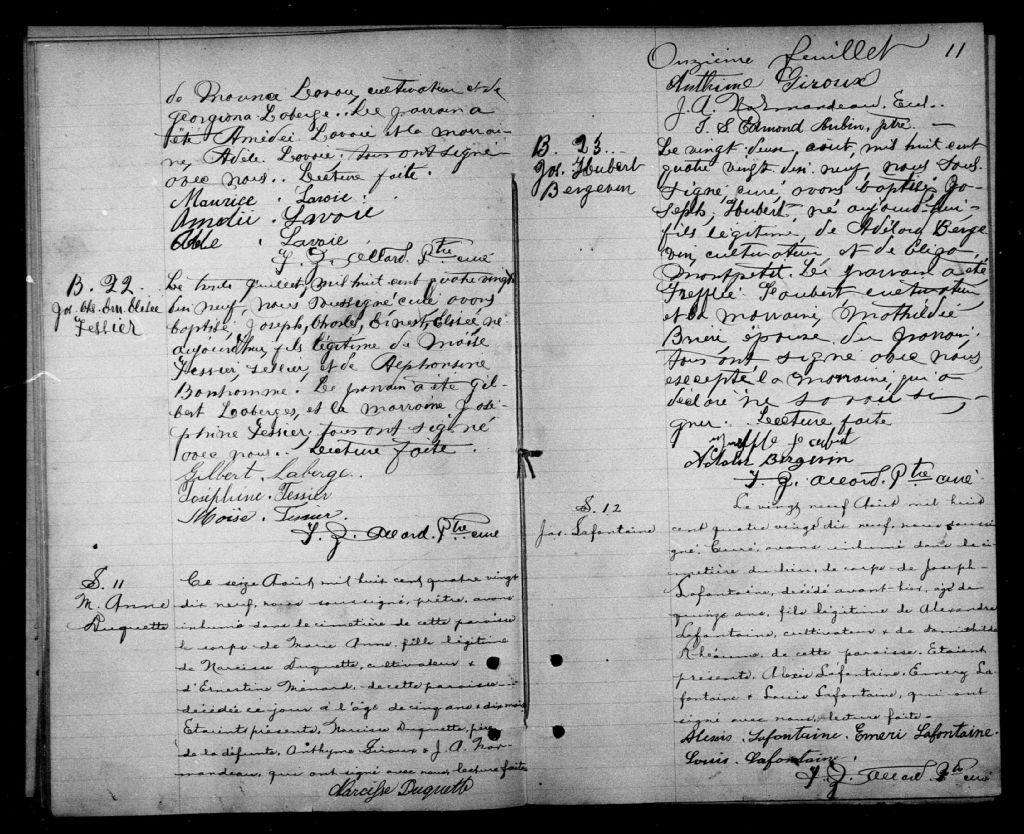 de Maurice Lavoie, cultivateur et de
Georgiana Laberge. Le parrain a
été Amédée Lavoie et la marrai-
ne, Adèle Lavoie. tous ont signé
avec nous. Lecture faite.
Maurice Lavoie
Amedée Lavoie
Adele Lavoie
Allard. Ptre curé
B. 22.
Jos. Chs. Ern. Elisée
Tessier
Le trente Juillet, mil huit cent quatre vingt
dix neuf, nous soussigné curé avons
baptisé, Joseph, Charles, Ernest, Elisée, né
aujourd'hui, fils légitime de Moïse
Tessier, sellier, et de Alphonsine
Bonhomme. Le parrain a été Gil-
bert Laberges, et la marraine José-
phine Tessier, tous ont signé
avec nous. Lecture faite.
Gilbert. Laberge.
Josephine. Tessier
Moïse. Tessier.
Allard. Ptre curé
S. 11
M. Anne
Duquette
Ce seize Août, mil huit cent quatre vingt
dix neuf, nous soussigné, prêtre, avons
inhumé dans le cimetière de cette paroisse
le corps de Marie Anne, fille légitime
de Narcisse Duquette, cultivateur &
d'Ernestine Ménard, de cette paroisse
décédée ce jour à l'âge de cinq ans & dix mois
Etaient présents, Narcisse Duquette, père
de la défunte, Anthyme Giroux & J. A. Nor-
mandeau, qui ont signé avec nous, lecture faite
Narcisse Duquette
Onzième feuillet 11
Anthime Giroux
J. A. Normandeau. Eccl.
J. S. Edmond Aubin, ptre.
B. 23.
Jos. Hubert
Bergevin
Le vingt deux, août, mil huit cent
quatre vingt dix neuf, nous sous-
signé, curé, avons baptisé, Jo-
seph, Hubert, né aujourd'hui
fils légitime, de Adélard Berge-
vin, cultivateur et de Eliza
Montpetit. Le parrain a été
Trefflé Jaubert cultivateur
et la marraine, Mathildée
Brière épouse du parrain,
tous ont signé avec nous
excepté la marraine, qui a
déclaré ne savoir si-
gner. Lecture faite
Adelard Bergevin
Allard. Ptre curé
S. 12
Jos. Lafontaine
Le vingt neuf Août mil huit
cent quatre vingt dix neuf, nous soussi-
gné, Curé, avons inhumé dans le ci-
metière du lieu, le corps de Joseph
Lafontaine, décédé avant hier, âgé de
quinze ans, fils légitime de Alexandre
Lafontaine, cultivateur & de Domithilde
Rhéaume, de cette paroisse. Etaient
présents, Alexis Lafontaine, Emery La-
fontaine & Louis Lafontaine, qui ont
signé avec nous, lecture faite.
Alexis. Lafontaine. Emeri Lafontaine.
Louis. Lafontaine.
Allard. Ptre curé